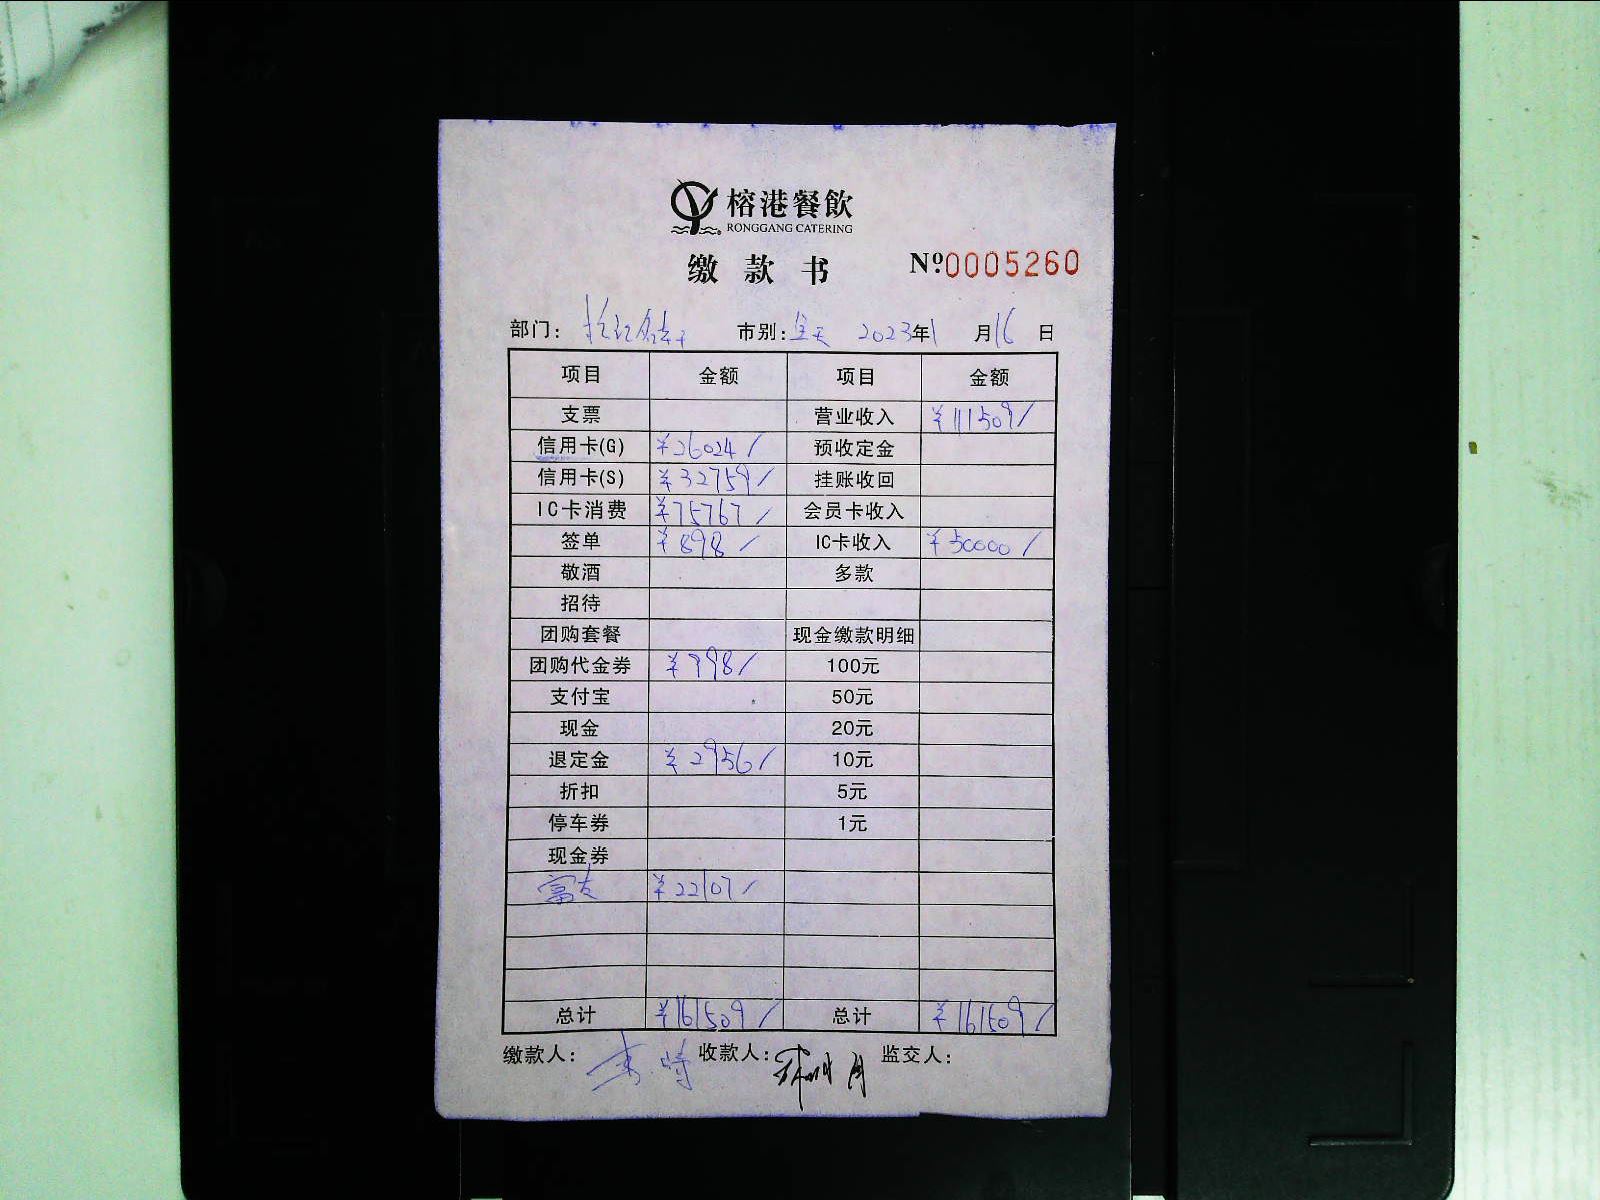 榕港餐飲
RONGGANG CATERING
缴款书 №0005260
部门: 市别: 全天 2023年1月16日
项目 金额 项目 金额
支票 营业收入 ¥111509/
信用卡(G) ¥26024/ 预收定金
信用卡(S) ¥32759/ 挂账收回
IC卡消费 ¥75767/ 会员卡收入
签单 ¥898/ IC卡收入 ¥50000/
敬酒 多款
招待
团购套餐 现金缴款明细
团购代金券 ¥998/ 100元
支付宝 50元
现金 20元
退定金 ¥2956/ 10元
折扣 5元
停车券 1元
现金券
富友 ¥22107/
总计 ¥161509/ 总计 ¥161509/
缴款人: 收款人: 监交人: